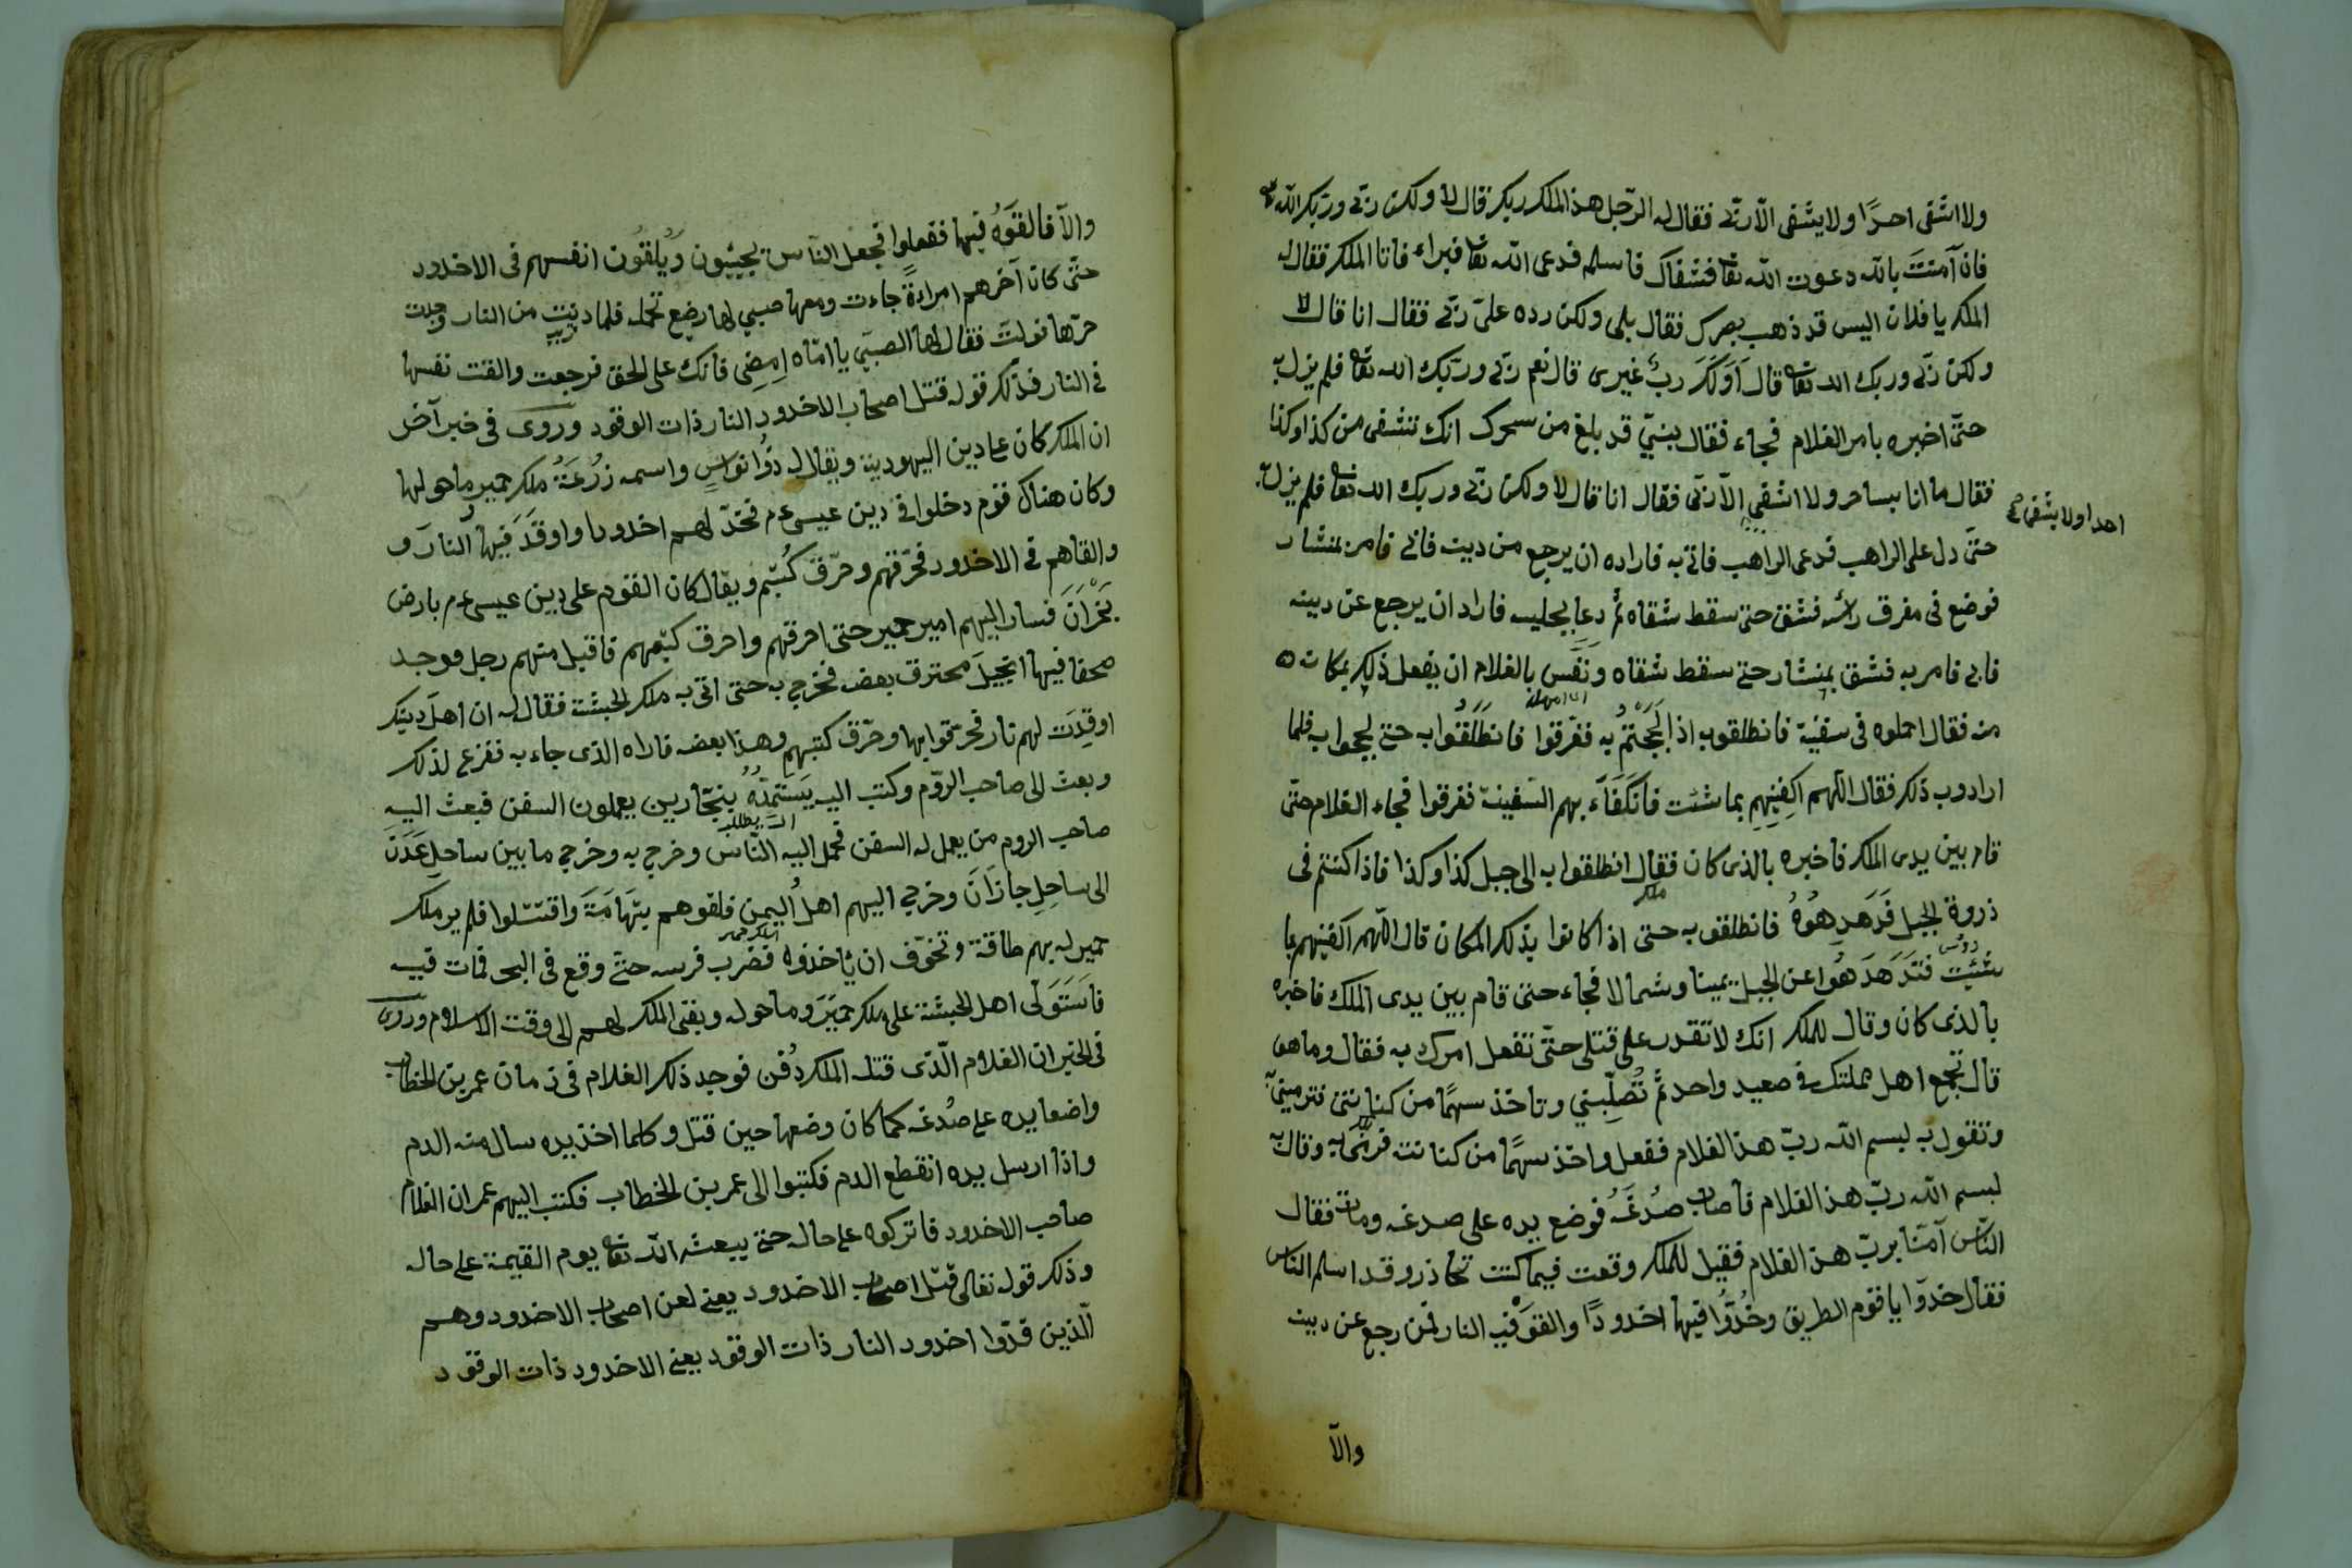 ولا اشفى احدًا ولا يشفى الّا ربّى فقال له الرّجل هذا الملك ربك قال لا ولكن ربّى وربّك الله تع
فان آمنتَ بالله دعوت الله تعا فشفاك فاسلم فدعى الله تعا فبراء فاتا الملك فقال له
الملك يا فلان اليس قد ذهب بصرك فقال بلى ولكن رده علىّ ربّى فقال انا قال لا
ولكن ربّى وربك الله تعا قال اَوَلَكَ ربٌّ غيرى قال نعم ربّى وربّك الله تعا فلم يزل به
حتّى اخبره بامر الغلام فجاء فقال بنىّ قد بلغ من سحرك انك تشفى من كذا وكذا
فقال ما انا بساحر ولا اشفي الّا ربّى فقال انا قال لا ولكن ربّى وربك الله تعا فلم يزل به
احدا ولا يشفى
حتّى دل على الراهب فدعى الراهب فاتى به فاراده ان يرجع من دينه فابى فامر بمنشار
فوضع فى مفرق رأسه فشق حتى سقط شقاه ثُمّ دعا بجليسه فاراد ان يرجع عن دينه
فابى فامر به فشق بمنشار حتى سقط شقاه ونفس بالغلام ان يفعل ذلك بمكانه
منه فقال احملوه فى سفينة فانطلقوا به اذا لَجَجْتُمْ به فغرقوا فانطَلَقُوا به حتى لججوا به فلما
ارادوا به ذلك فقال اللّهم اكفِنِيهِم بما شئت فانكَفَأَتْ بهم السّفينة فغرقوا فجاء الغلام حتّى
قام بين يدى الملك فاخبره بالذى كان فقال انطلقوا به الى جبل كذا وكذا فاذا كنتم فى
ذروة الجبل فَدَهدِهُوهُ فانطلقوا به حتى اذا كانوا بذلك المكان قال اللّهم اكفينهم بما
شئتَ فتَدَهدَهُوا عن الجبل يمينا وشمالا فجاء حتى قام بين يدى الملك فاخبره
بالذى كان وقال للملك انك لا تقدر على قتلى حتّى تفعل امرك به فقال وما هو
قال تجمع اهل مملكتك فى صعيد واحد ثمّ تُصَلِّبُنِي وتاخذ سهمًا من كنانتى فترمينى به
وتقول به لبسم الله ربّ هذا الغلام ففعل واخذ سهمًا من كنانته فرمى به وقال به
لبسم الله ربّ هذا الغلام فاصاب صُدغَهُ فوضع يده على صدغه ومات فقال
النّاس آمنّا بربّ هذا الغلام فقيل للملك وقعت فيما كنت تحاذر وقد اسلم الناس
فقال خذوا يا قوم الطريق وخُدُّوا فيها اخدودًا والقوا فيه النار فمن رجع عن دينه
والّا
والّا فالقَوْهُ فيها ففعلوا فجعل النّاس يجيئون ويُلقُون انفسهم فى الاخدود
حتّى كان آخرهم امراءةً جاءت ومعها صبيي لها رضيع تحمله فلما دنت من النار وجدت
حرّها فولت فقال لها الصبّي يا امّاه اِمضِي فانك على الحق فرجعت والقت نفسها
فى النار فذلك قوله قتل اصحاب الاخدود النار ذات الوقود وروى فى خبر آخر
ان الملك كان على دين اليهودية ويقال له ذُوا نواسٍ واسمه زُرعَةُ ملك حمير وما حولها
وكان هناك قوم دخلوا فى دين عيسى عم فخدّ لهم اخدودا واوقَدَ فيها النارَ و
والقاهم فى الاخدود فحرّقهم وحرّق كُتبهم ويقال كان القوم على دين عيسى عم بارض
نَجْرَانَ فسار اليهم امير حمير حتى احرقهم واحرق كتبهم فاقبل منهم رجل فوجد
صحفا فيها انجيلَ محترق بعضه فخرج به حتى اتى به ملك الحبشة فقال له ان اهلَ دينك
اوقِدَت لهم نار فحرّقوا بها وحرّق كتبهم وهذا بعضه فاراه الذى جاء به ففزع لذلك
وبعث الى صاحب الرّوم وكتب اليه يَستَمِدُّهُ بنجّارين يعملون السفن فبعث اليه
صاحب الروم من يعمل له السفن فحمل اليه النّاس وخرج به وخرج ما بين ساحل عَدَنَ
الى ساحلِ جازَانَ وخرج اليهم اهلُ اليمن فلقوهم بتِهَامَةَ واقتتلوا فلم ير ملك
حمير له بهم طاقة وتخوّف ان يأخذوه فضرب فرسه حتى وقع فى البحر فمات فيه
فاستَولَى اهل الحبشة على ملك حميَرَ وما حوله وبقى الملك لهم الى وقت الاسلام وروى
فى الخبر ان الغلام الّذى قتله الملك دُفن فوجد ذلك الغلام فى زمان عمر بن الخطاب
واضعا يده على صُدغه كما كان وضعها حين قتل وكلما اخذ يده سال منه الدم
واذا ارسل يده انقطع الدم فكتبوا الى عمر بن الخطاب فكتب اليهم عمر ان الغلام
صاحب الاخدود فاتركوه على حاله حتى يبعثه الله تعا يوم القيمة على حاله
وذلك قوله تعالى قتل اصحاب الاخدود يعنى لعن اصحاب الاخدود وهم
الّذين قدّوا اخدود النار ذات الوقود يعنى الاخدود ذات الوقود